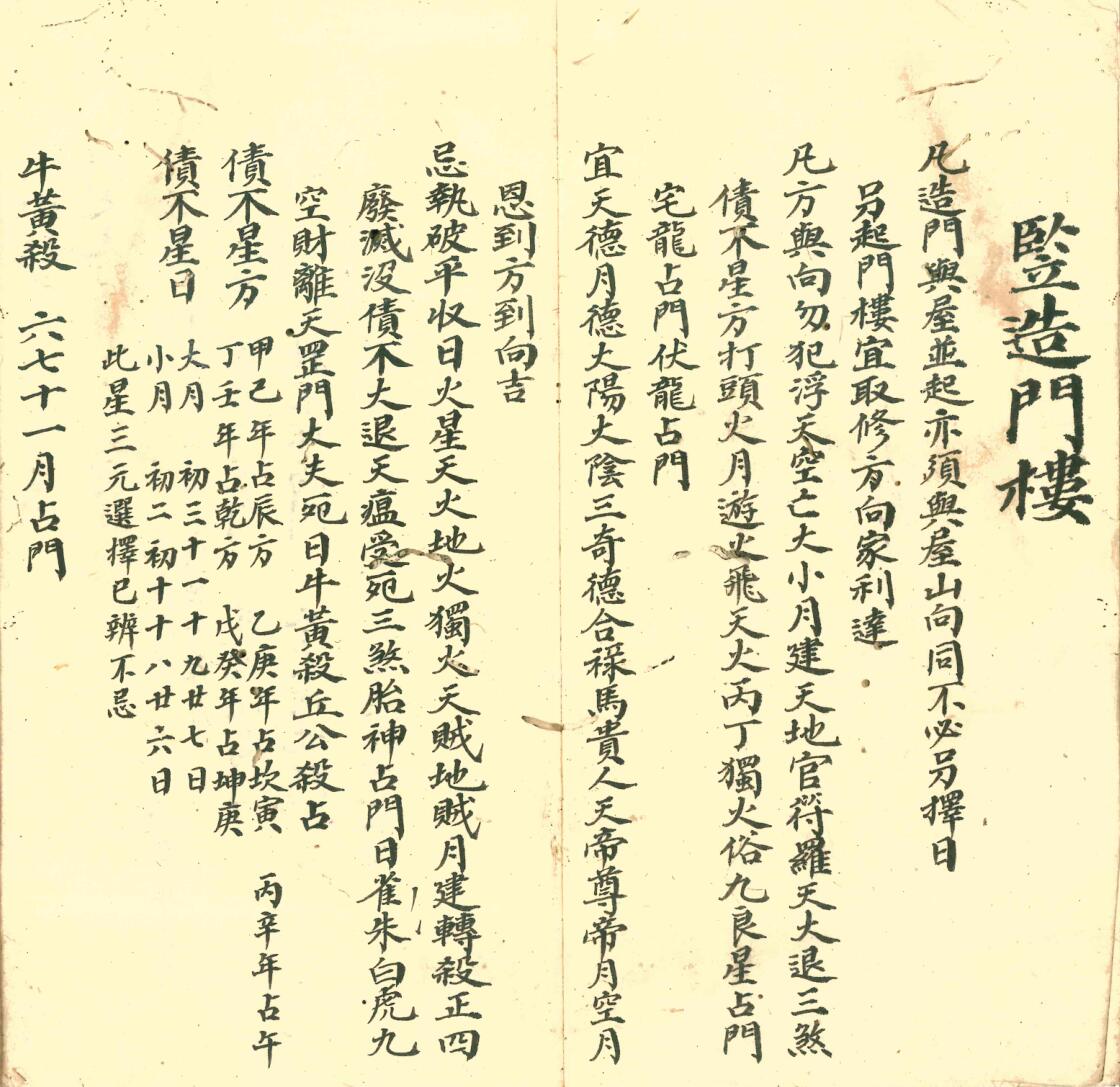 豎造門樓
凡造門與屋並起亦須與屋山向同不必另擇日
另起門樓宜取修方向家利達
凡方與向勿犯浮天空亡大小月建天地官符羅天大退三煞
債不星方打頭火月遊火飛天火丙丁獨火俗九良星占門
宅龍占門伏龍占門
宜天德月德太陽太陰三奇德合祿馬貴人天帝尊帝月空月
恩到方到向吉
忌執破平收日火星天火地火獨火天賊地賊月建轉殺正四
廢滅沒債不大退天瘟受死三煞胎神占門日雀朱白虎九
空財離天罡門大夫死日牛黃殺丘公殺占
債不星方 甲己年占辰方 乙庚年占坎寅 丙辛年占午
丁壬年占乾方 戊癸年占坤庚
債不星日 大月 初三十一十九廿七日
小月 初二初十十八廿六日
此星三元選擇已辨不忌
牛黃殺 六七十一月占門